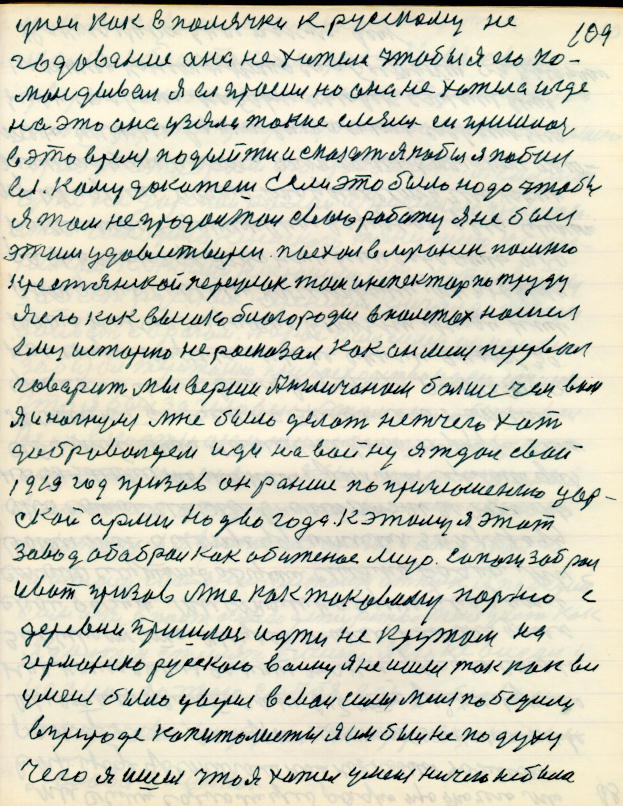 109
упей как в полячки к русскому не
годование она не хотела чтобы я его по-
я ей просил но она не хотела и где
на это она узяла такие слезих ей пришлос
в это время подыйти и сказат я побил я побил
вл. Кому докажеш Если это было надо чтобы
я там не продолжал свою работу я не был
этим удовлетворен. поехал в
крестянской переулок там инспектар по труду
я его как високоблагородие в нашел
ему исторыю не росказал как он мня перервал
говарит мы верим Англичаном болше чем вам
я и ногнулс мне было делат нечего хот
доброволцем иди на вайну я ждал свой
1919 год призов он ранше по приглошению цар-
ской армии на два года. К этому я этот
завод обабрал как обиженое лицо. сапоги забрал
и вот призов мне как таковому парню с
деревни пришлос идти не кругом на
германско русского воину я не ишел так как ви
у меня было уверие в свои силы меня победили
в природе копитолисты я им был не по духу
чего я ишел что я хотел у меня ничего небыла